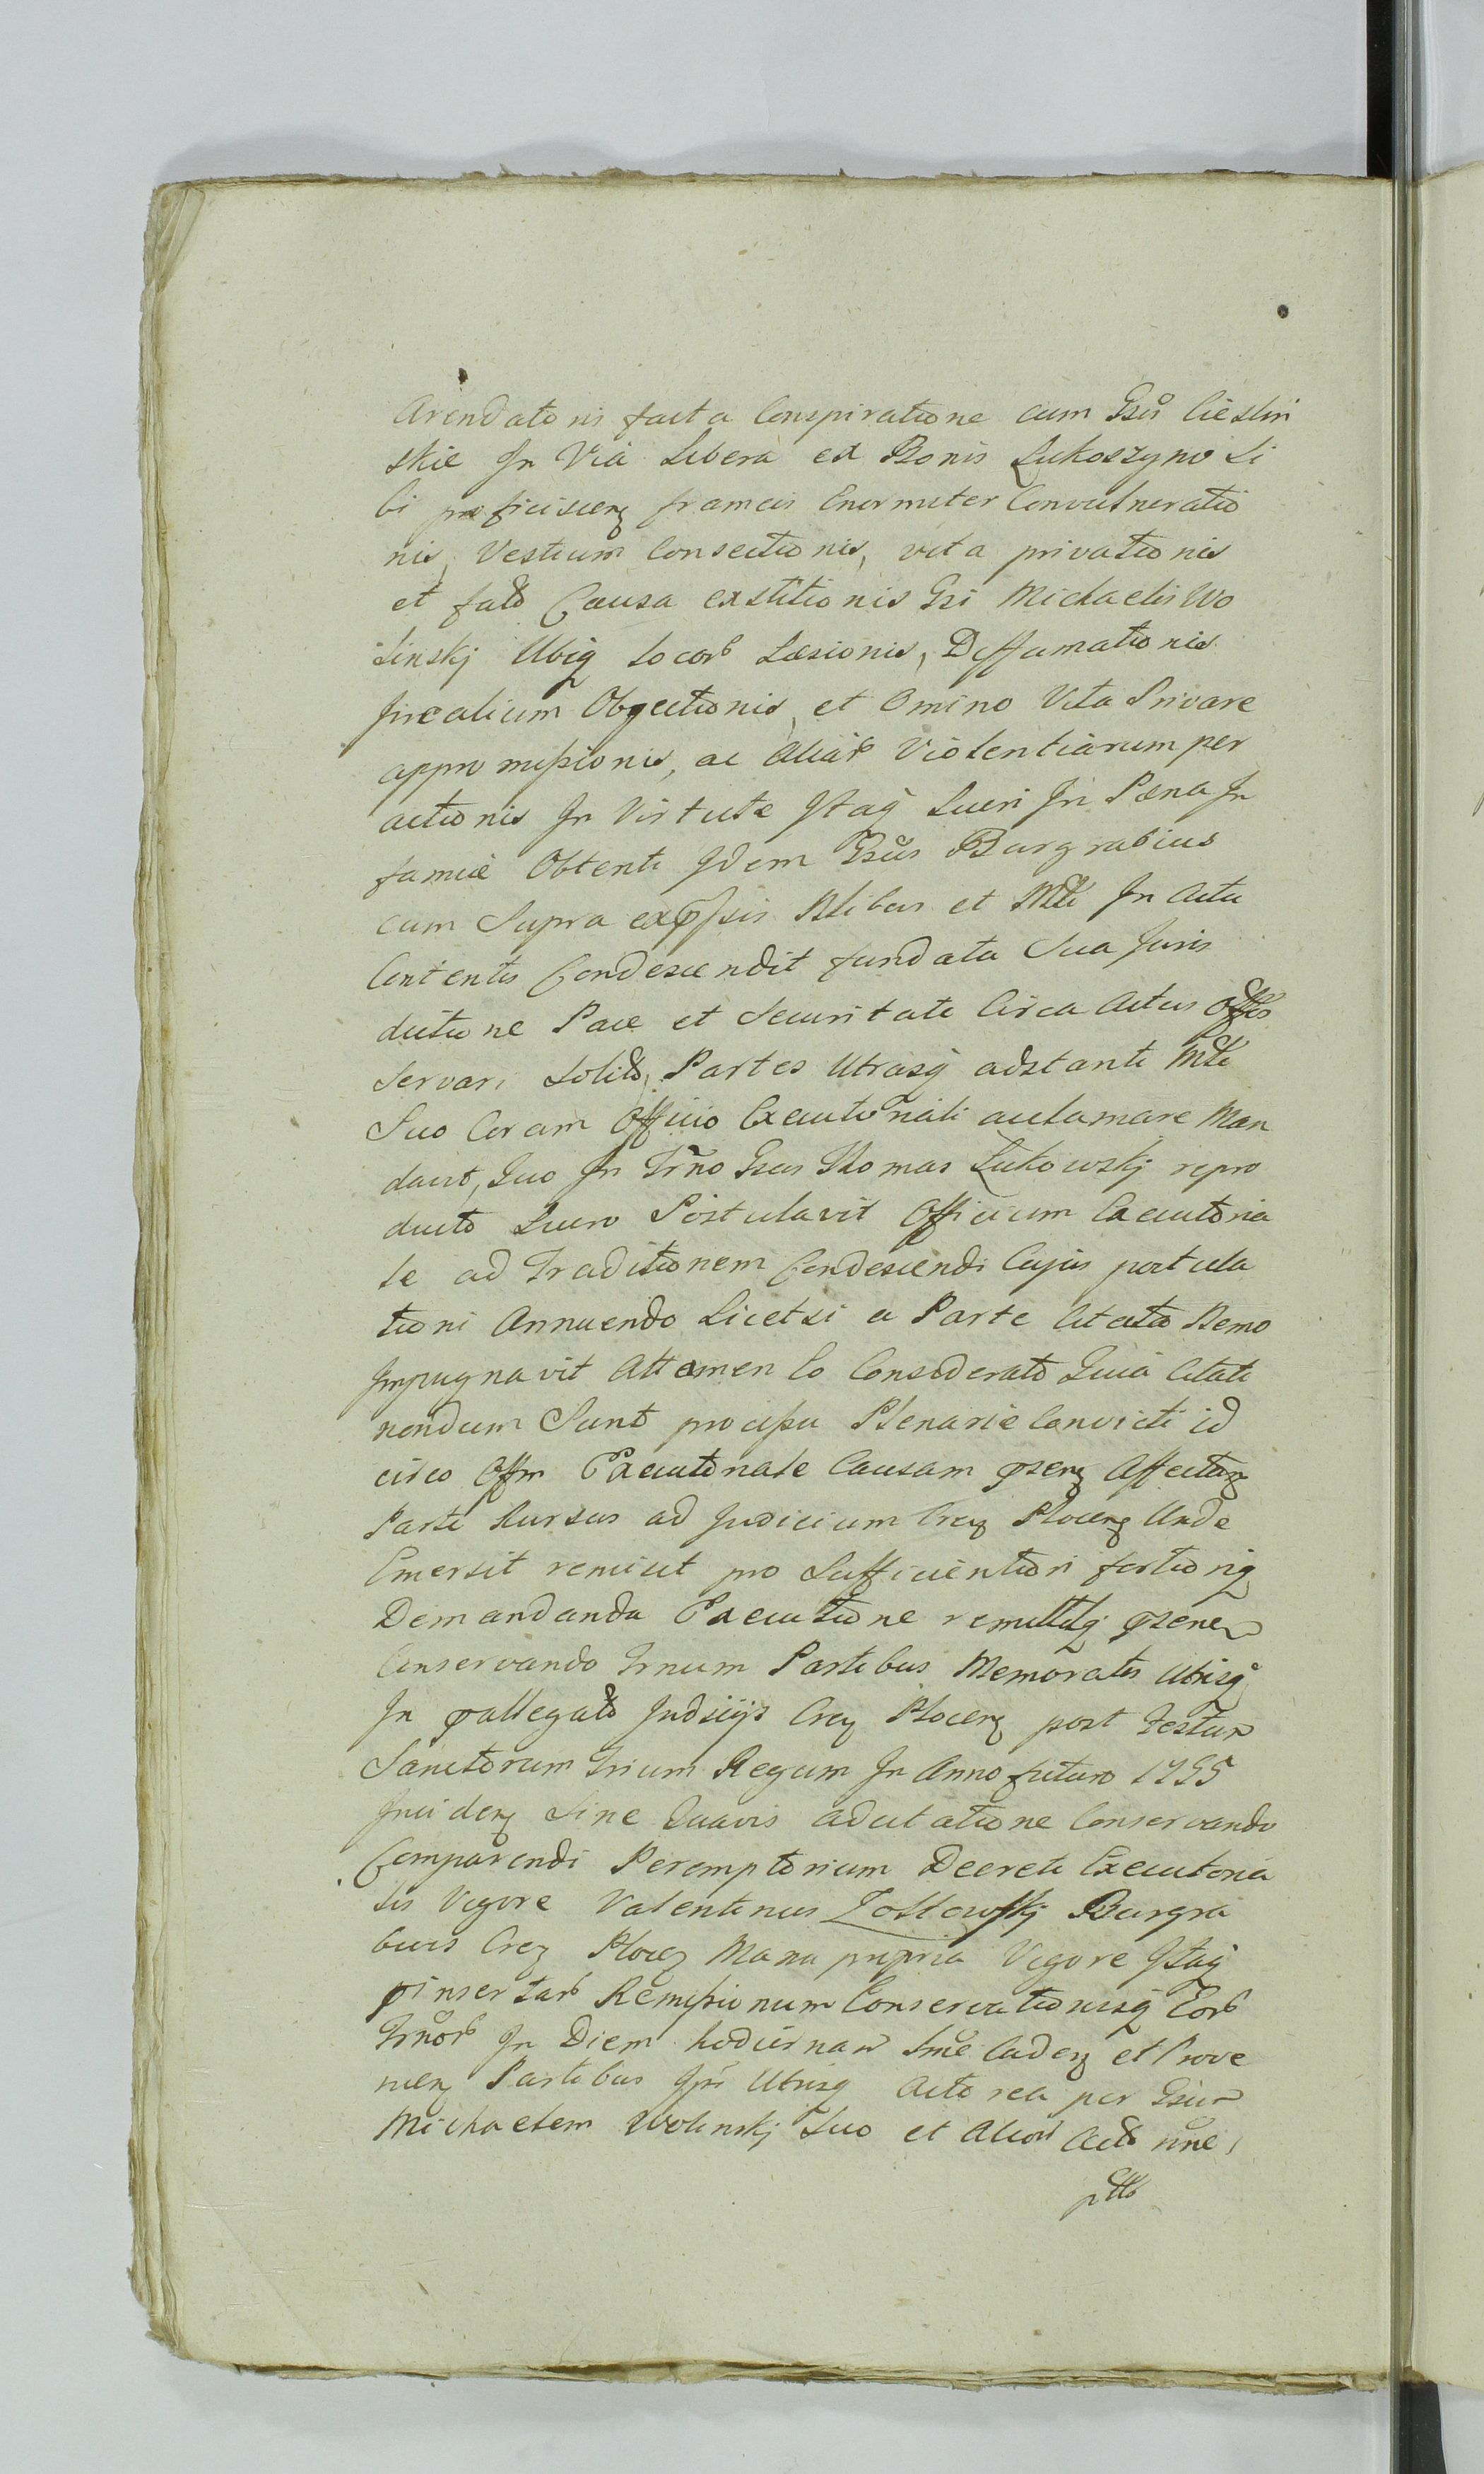 Arendatoris facta Conspiratione cum Gsis Cieslin
skie In Via Libera ex Bonis Lukoszyno Si
bi proficiscen frameis Enormiter Convulneratio
nis, Vestium Consectionis, vita privationis
et fato Causa exstitionis Gsi Michaelis Wo
linskj Ubiq locorb Læsionis, Deffamationis
Irrealium Objectionis, et Omino Vita Privare
appromissionis, ac Aliarb Violentiarum per
actionis In Virtute Itaq Lucri In Pæna In
famiæ Obtenti Idem Gsus Burgrabius
cum Supra expssis Nlibus et Mtli In Actu
Contentis Condescendit fundata Sua Juris
dictione Pace et Securitate Circa Actus Offos
Servari Solito, Partes Utrasq adstante Mtli
Suo Coram Officio Executoriali acclamare Man
davit, Quo In Trno Gsus Thomas Lukowskj repro
ducto Lucro Postulavit Officium Executoria
le ad Traditionem Condescendi Cujus postula
tioni Annuendo Licet si a Parte Citata Nemo
Impugnavit Attamen Eo Considerato Quia Citati
nondum Sunt processu Plenarie Convicti id
circo Offm Executoriale Causam psen Affectan
Parte Rursus ad Judicium Cren Plocen Unde
Emersit remisit pro Sufficientiori fortioriq
Demandanda Executione remittitq psene
Conservando Trnum Partibus Memoratis Utrisq
In pallegato Judiciis Cren Plocen post Festum
Sanctorum Trium Regum In Anno futuro 1755
Inciden Sine Quavis adcitatione Conservando
Comparendi Peremptorium Decreti Executoria
lis Vigore Valentinus Zoltowskj Burgra
bius Cren Plocen Manu propria Vigore Itaq
pinsertarb Remissionum Conservationisq Eorb
Trnorb In Diem hodiernam Sme Caden et Prove
nien Partibus Ipsi Utrisq Actorea per Gsum
Michaelem Wolinskj Suo et Aliorb Acto nne,
ptto